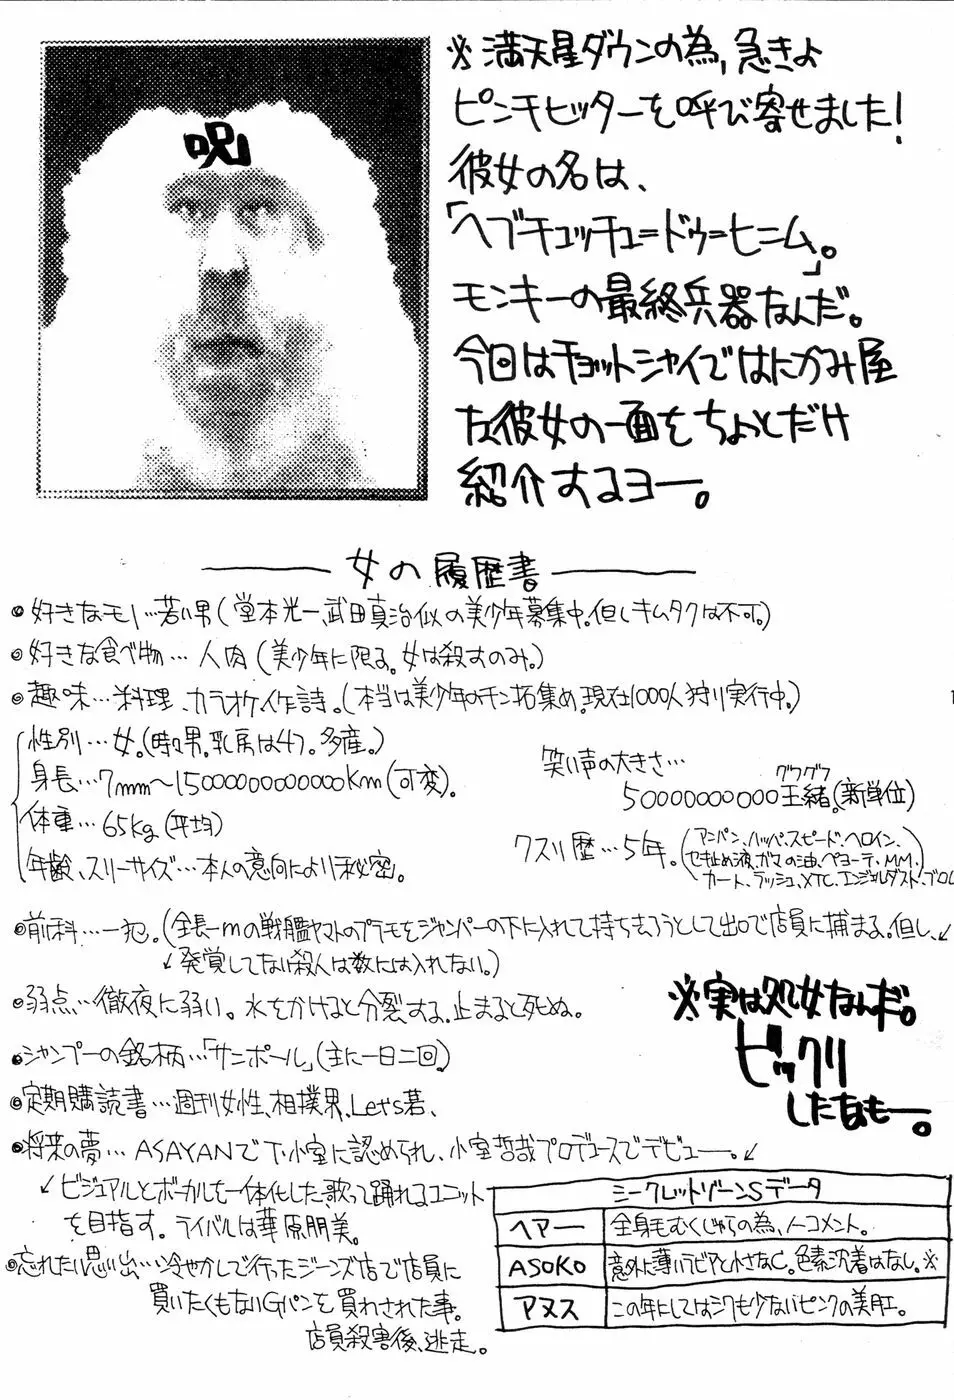 呪
※満天星ダウンの為、急きょ
ピンチヒッターを呼び寄せました!
彼女の名は、
「ヘブチュッチュ=ドゥ=ヒニム」。
モンキーの最終兵器なんだ。
今回はチョットシャイではにかみ屋
な彼女の一面をちょっとだけ
紹介するヨー。
女の履歴書
●好きなモノ…若い男(堂本光一、武田真治似の美少年募集中。但しキムタクは不可。)
●好きな食べ物…人肉(美少年に限る。女は殺すのみ。)
●趣味…料理、カラオケ、作詩。(本当は美少年のチン拓集め。現在1000人狩り実行中。)
性別…女。(時々男。乳房は47。多産。)
身長…7mm〜1500000000000Km(可変)。
体重…65Kg(平均)
年齢、スリーサイズ…本人の意向により秘密。
笑い声の大きさ…
グウグウ
50000000000王緒。(新単位)
クスリ歴…5年。(アンパン、ハッパ、スピード、ヘロイン、
セキ止め液、ガマの油、ペヨーテ、MM、
カート、ラッシュ、XTC、エンジェルダスト、ブロ
●前科…一犯。(全長一mの戦艦ヤマトのプラモをジャンパーの下に入れて持ち去ろうとして出口で店員に捕まる。但し、↙
↙発覚してない殺人は数には入れない。)
●弱点…徹夜に弱い。水をかけると分裂する。止まると死ぬ。
●シャンプーの銘柄…「サニポール」(主に一日二回)
●定期購読書…週刊女性、相撲界、Let's碁、
●将来の夢…ASAYANで下小室に認められ、小室哲哉プロデュースでデビュー。↙
↙ビジュアルとボーカルを一体化した、歌って踊れるユニット
を目指す。ライバルは華原朋美。
●忘れたい思い出…冷やかしで行ったジーンズ店で店員に
買いたくもないGパンを買わされた事。
店員殺害後、逃走。
※実は処女なんだ。
ビックリ
したなもー。
シークレットゾーンSデータ
ヘアー 全身毛むくじゃらの為、ノーコメント。
ASOKO 意外に薄いラビアと小さなC。色素沈着はなし。※
アヌス この年にしてはシワも少ないピンクの美肛。